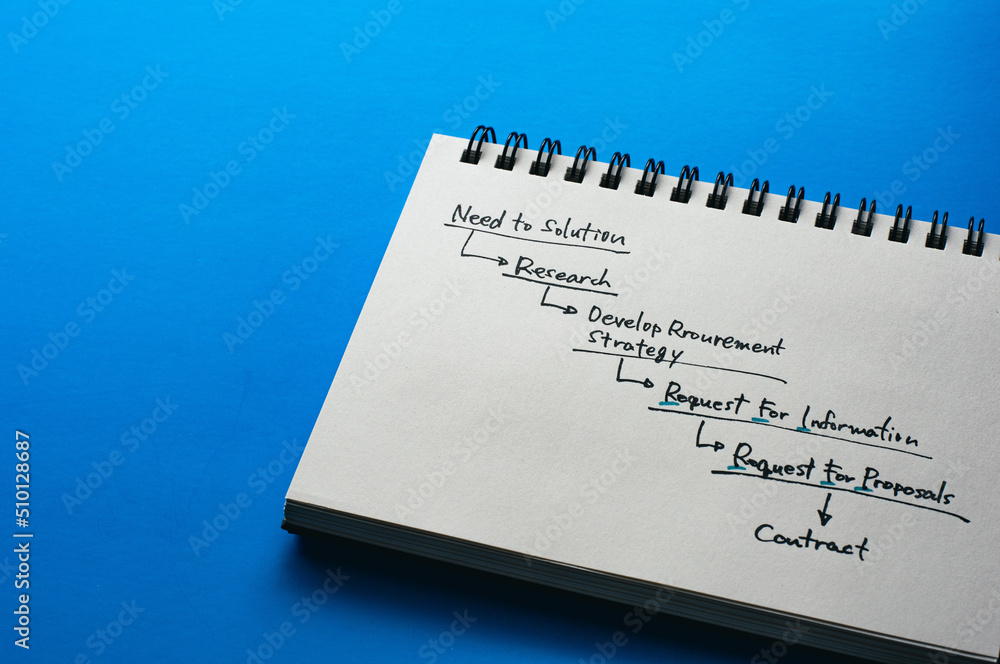 Need to Solution
Research
Develop Rrourement
Strategy
Request For Information
Request For Proposals
Contract
Adobe Stock | #510128687